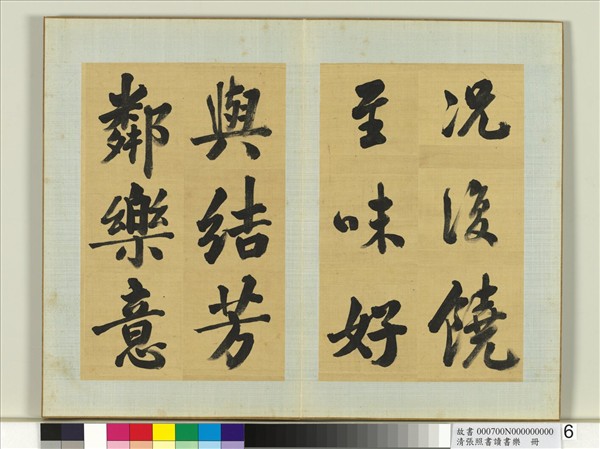 况復饒
至味好
與結芳
鄰樂意
故書 000700N000000000
清張照書讀書樂 冊
6